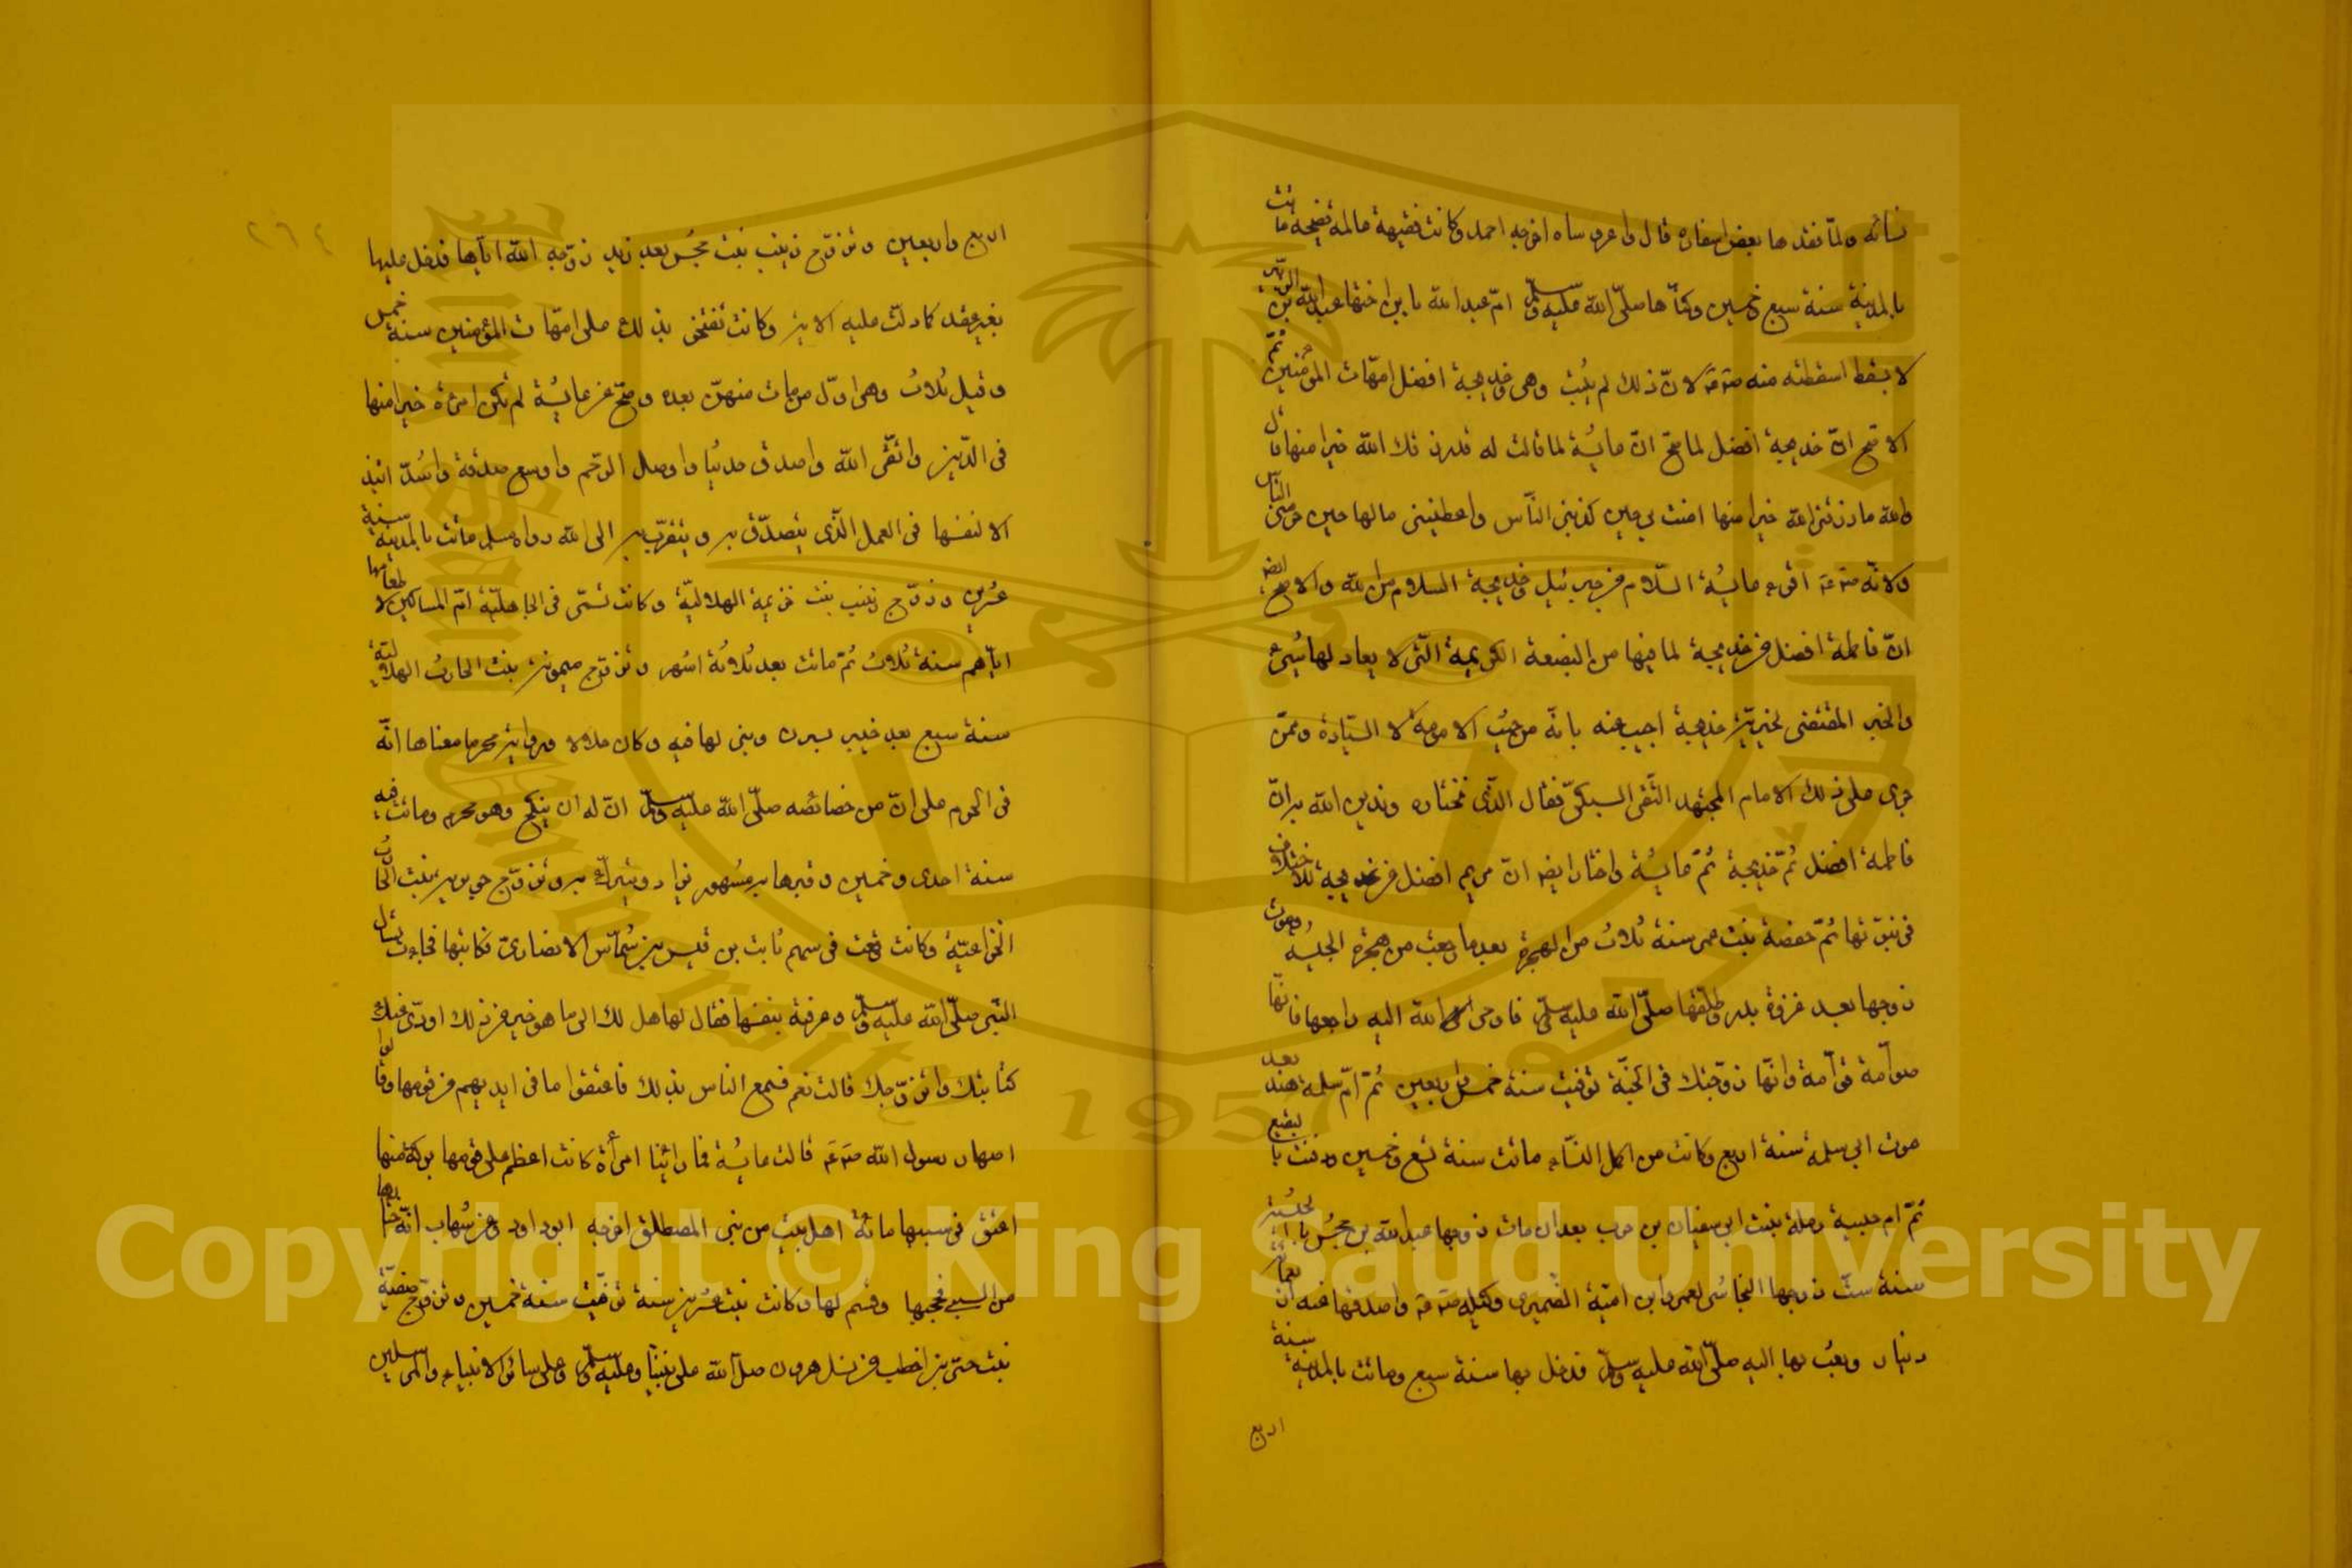 نسائه ولمّا فقدها بعض اسفاره قال واعروساه اخرجه احمد وكانت فقيهة عالمة فصيحة ماتت
بالمدينة سنة سبع وخمسين وكنّاها صلّى الله عليه وسلّم امّ عبد الله بابن اختها عبد الله بن الزبير
لا بسقط اسقطته منه صَ‍عَم لانّ ذلك لم يثبت وهى وخديجة افضل امهّات المؤمنين ثمّ
الاصح انّ خديجة افضل لما صحّ انّ عايشة لما قالت له قد رزقك الله خيرا منها قال
والله ما رزقنى الله خيرا منها امنت بى حين كذبنى النّاس واعطتنى مالها حين حرمنى النّاس
ولانّه صَ‍عَم اقرء عايشة السّلام من جبرئيل وخديجة السلام من الله والاصح ايضا
انّ فاطمة افضل من خديجة لما فيها من البضعة الكريمة الّتى لا يعاد لها شىء
والخبر المقتضى لخيريّة خديجة اجيب عنه بانّه من حيث الامومة لا السّيادة وممّن
جرى على ذلك الامام المجتهد التّقى السبكىّ فقال الّذى نختاره وندين الله به انّ
فاطمة افضل ثمّ خديجة ثمّ عايشة واختار ايضا انّ مريم افضل من خديجة للاختلاف
فى نبوّتها ثمّ حفصة بنت عمر سنة ثلاث من الهجرة بعدما رجعت من هجرة الحبشه وموت
زوجها بعد غزوة بدر وطلّقها صلّى الله عليه وسلّم فاوحى الله اليه راجعها فانّها
صوّامة قوّامة وانّها زوجتك فى الجنّة توفيت سنة خمس واربعين ثمّ امّ سلمة هند بعد
موت ابى سلمة سنة اربع وكانت من اكمل النّساء ماتت سنة تسع وخمسين ودفنت بالبقيع
ثمّ ام حبيبة رملة بنت ابى سفيان بن حرب بعد ان مات زوجها عبد الله بن جحش بالحبشة
سنة ستّ زوجها النجاشى لعمرو ابن اميّة الضّميرى وكيله صَ‍عَم واصدقها عنه اربعمائة
دينار وبعث بها اليه صلّى الله عليه وسلّم فدخل بها سنة سبع وماتت بالمدينة سنة
اربع
٢٦٤
اربع واربعين وتزوّج زينب بنت جحش بعد زيد زوّجه الله ايّاها فدخل عليها
بغير عقد كما دلّت عليه الاية وكانت تفتخر بذلك على امهّات المؤمنين سنة خمس
وقيل ثلاث وهى اوّل من مات منهنّ بعده وصحّ عن عايشة لم تكن امرأة خيرا منها
فى الدّين واتقى الله واصدق حديثا واوصل الرحم واوسع صدقة واشدّ ابتذ
الا لنفسها فى العمل الّذى يتصدّق به ويتقرّب به الى الله رواه مسلم ماتت بالمدينة سنة
عشرين وزوّج زينب بنت خزيمة الهلاليّة وكانت تسمّى فى الجاهليّة امّ المساكين لاطعامها
ايّاهم سنة ثلاث ثمّ ماتت بعد ثلاثة اشهر وتزوّج ميمونة بنت الحارث الهلاليّة
سنة سبع بعد خيبر بسرف وبنى لها فيه وكان حلالا ورواية محرما معناها انّه
فى الحرم على انّ من خصائصه صلّى الله عليه وسلّم انّ له ان ينكح وهو محرم وماتت فيه
سنة احدى وخمسين وقبرها به مشهور يزار ويتبرّك به وتزوّج جويرية بنت الحارث
الخزاعيّة وكانت وقعت فى سهم ثابت بن قيس بن شمّاس الانصارىّ فكاتبها فجاءت تسأل
النّبى صلّى الله عليه وسلّم وعرفة بنفسها فقال لها هل لك الى ما هو خير من ذلك اودّى عنك
كتابتك واتزوّجك قالت نعم فسمع الناس بذلك فاعتقوا ما فى ايديهم من قومها وقالوا
اصهار رسول الله صَ‍عَم قالت عايشة فما راينا امرأة كانت اعظم على قومها بركة منها
اعتق فى سببها مائة اهل بيت من بنى المصطلق اخرجه ابو داود وعن شهاب انّه اختارها
من السبى فحجبها وقسم لها وكانت بنت عشرين سنة توفّيت سنة خمسين وتزوّج صفيّة
بنت حيّى بن اخطب من نسل هرون صلّى الله على نبيّنا وعليه وسلّم وعلى سائر الانبياء والمرسلين
Copyright © King Saud University
King Saud University
1957